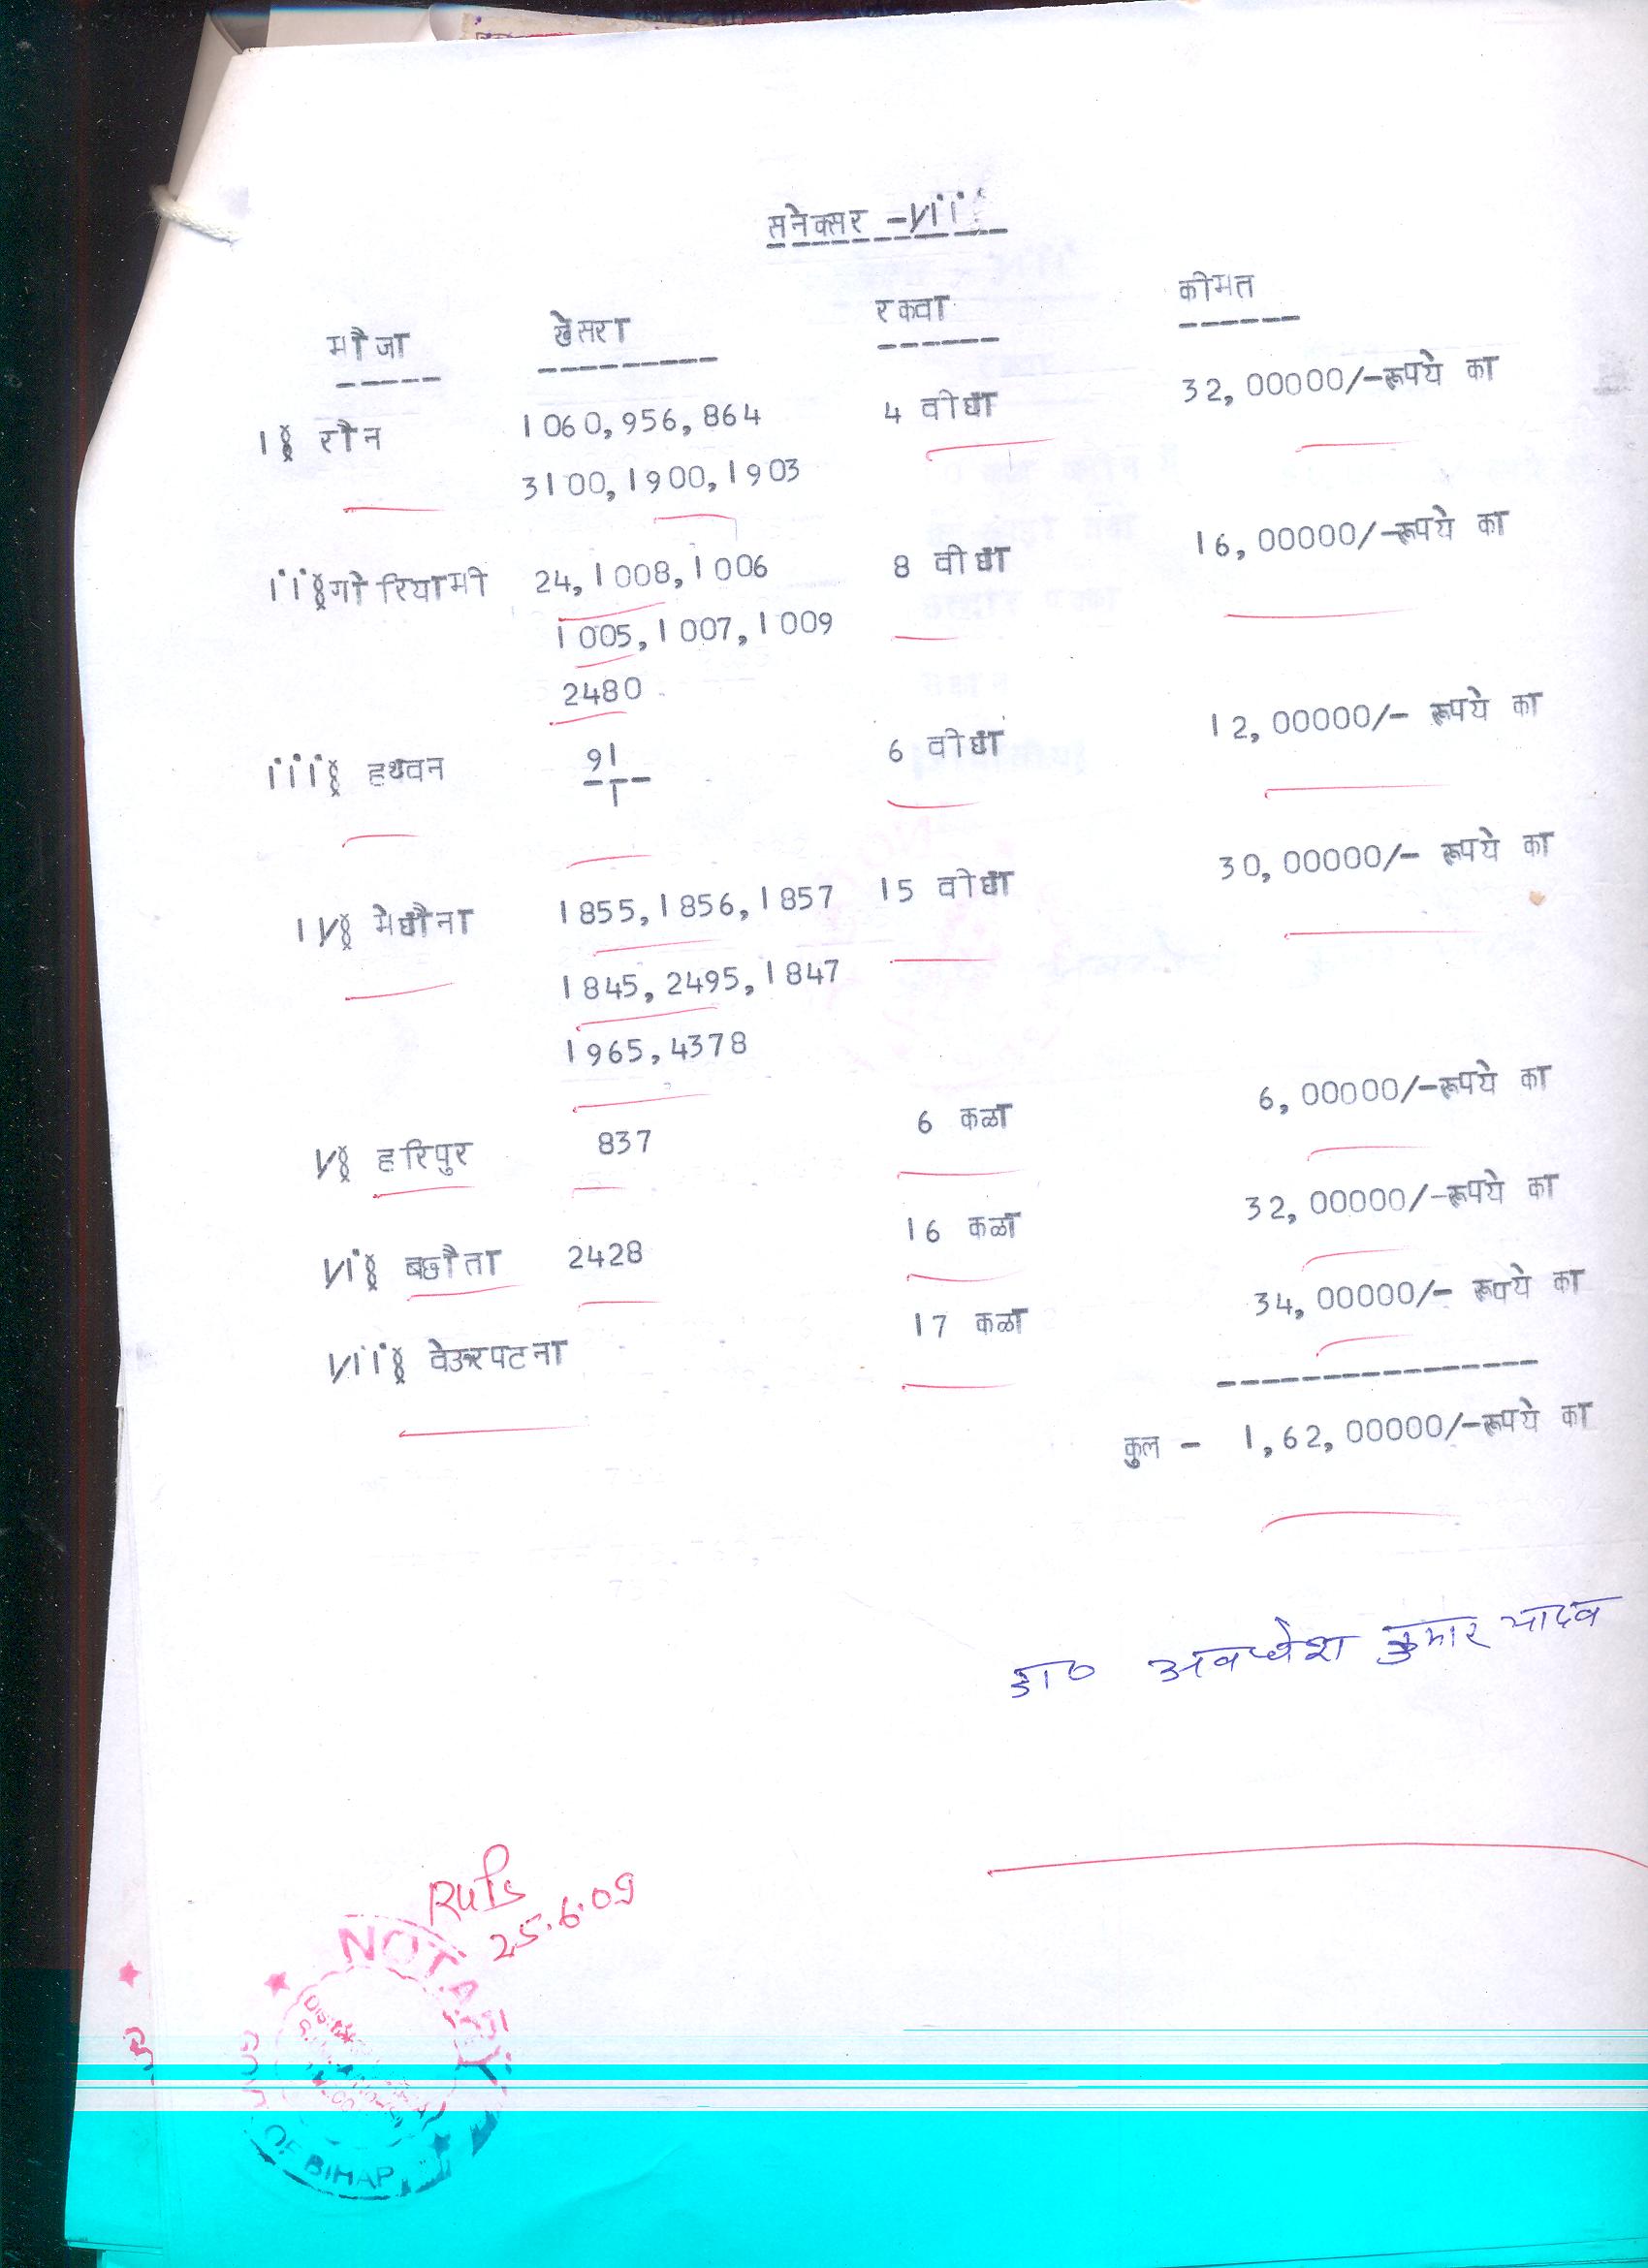 सनेक्सर -vii
मौजा खेसरा रकवा कीमत
i§ रौन 1060,956,864 4 वीघा 32,00000/-रूपये का
3100,1900,1903
ii§गोरियामी 24,1008,1006 8 वीघा 16,00000/-रूपये का
1005,1007,1009
2480
iii§ हथवन 91 6 वीघा 12,00000/- रूपये का
1
iv§ मेघौना 1855,1856,1857 15 वीघा 30,00000/- रूपये का
1845,2495,1847
1965,4378
v§ हरिपुर 837 6 कठ्ठा 6,00000/-रूपये का
vi§ बछौता 2428 16 कठ्ठा 32,00000/-रूपये का
vii§ वेउरपटना 17 कठ्ठा 34,00000/- रूपये का
कुल - 1,62,00000/-रूपये का
डा० अवधेश कुमार यादव
25.6.09
NOTARY
OF BIHAR